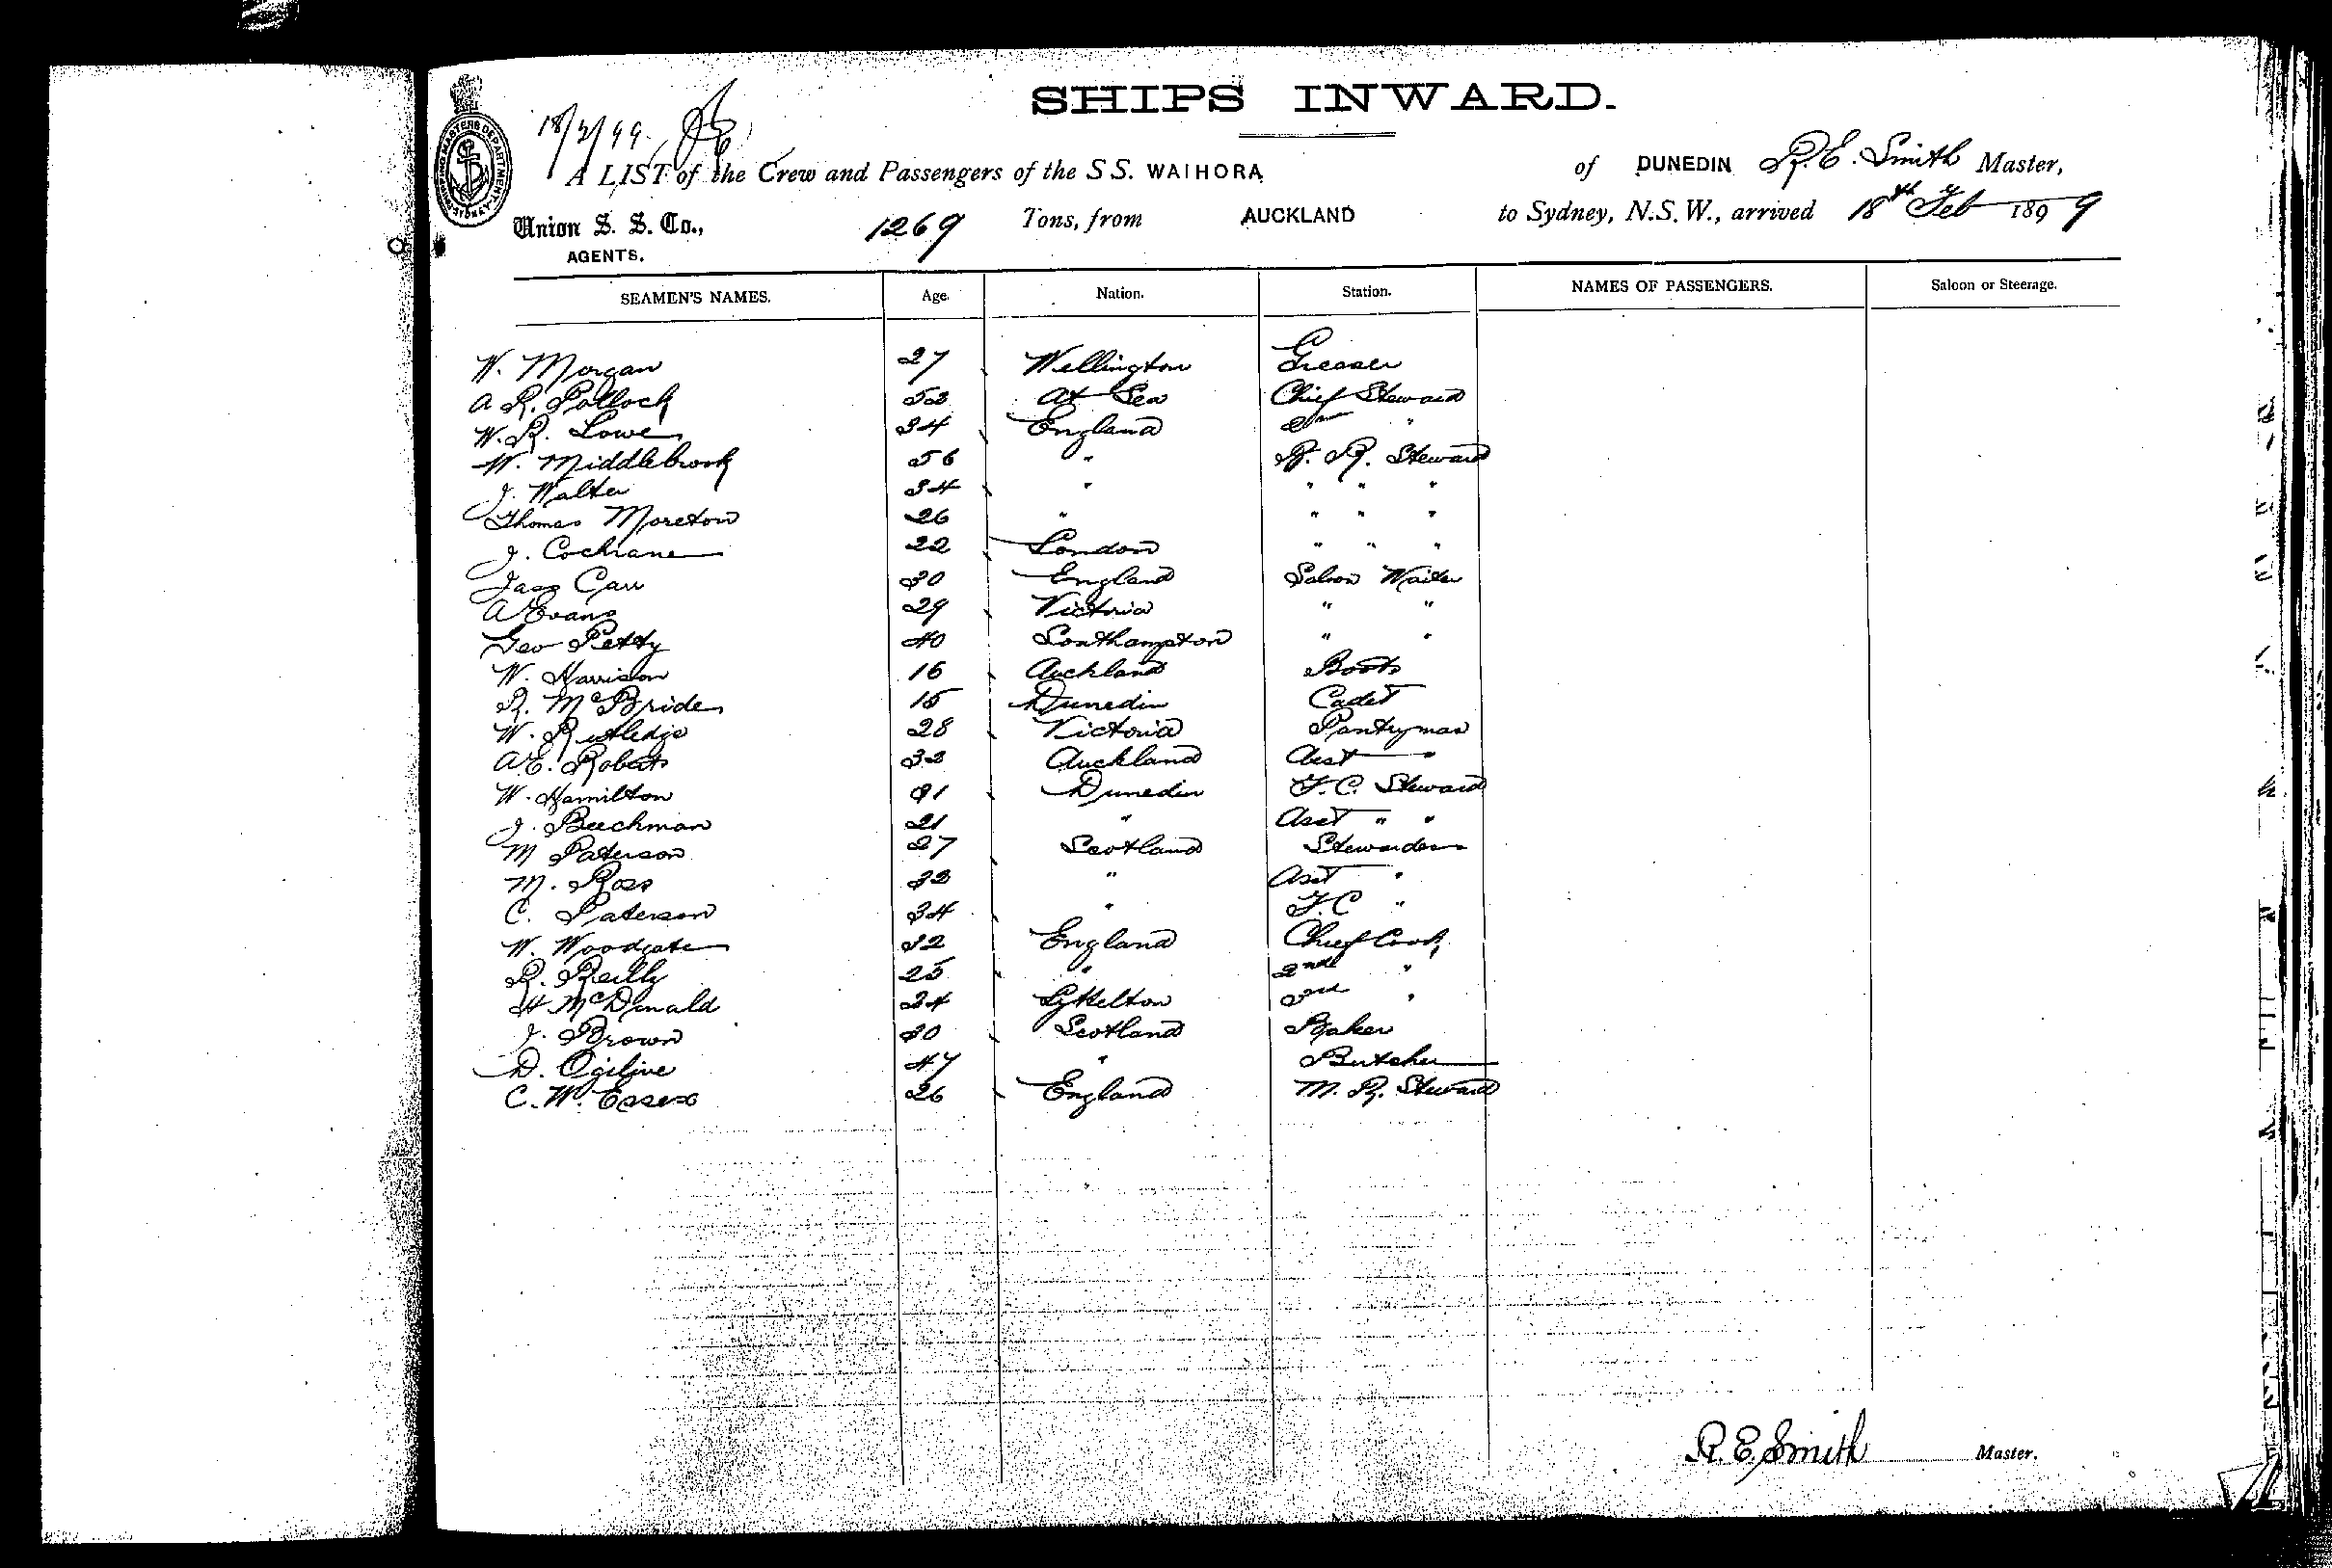 SHIPS INWARD.
18/2/99
A LIST of the Crew and Passengers of the S S. WAIHORA of DUNEDIN R. E. Smith Master,
Union S. S. Co., 1269 Tons, from AUCKLAND to Sydney, N.S.W., arrived 18th Feb 1899
AGENTS.
SHIPPING MASTERS DEPARTMENT SYDNEY
SEAMEN'S NAMES. Age. Nation. Station. NAMES OF PASSENGERS. Saloon or Steerage.
W. Morgan 27 Wellington Greaser
A R. Pollock 53 At Sea Chief Steward
W. R. Lowe 34 England "
W. Middlebrook 56 " F. R. Steward
J. Walter 34 " " " "
Thomas Moreton 26 " " " "
J. Cochrane 22 London " " "
Jass Carr 30 England Saloon Waiter
A Evans 29 Victoria " "
Geo Petty 40 Southampton " "
W. Harrison 16 Auckland Boots
R. McBride 15 Dunedin Cadet
W. Rutledge 28 Victoria Pantryman
A E. Roberts 33 Auckland Asst "
W. Hamilton 31 Dunedin F. C. Steward
J. Beechman 21 " Asst " "
M Paterson 27 Scotland Stewardess
M. Ross 33 " Asst "
C. Paterson 34 " F. C "
W. Woodgate 32 England Chief Cook
R. Reilly 25 " 2nd "
H McDonald 24 Lyttelton 3rd "
J. Brown 30 Scotland Baker
D. Ogilive 47 " Butcher
C. W. Essex 26 England M. R. Steward
R. E. Smith Master.